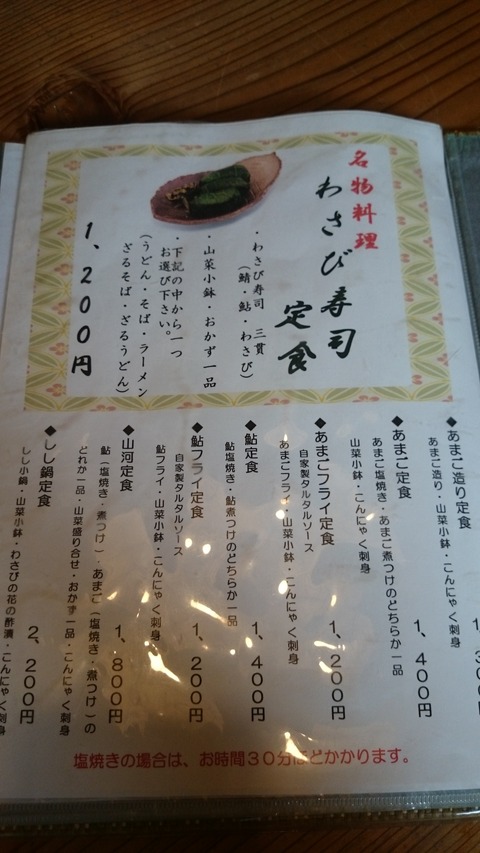 名物料理
わさび寿司
定食
・わさび寿司 三貫
(鯖・鮎・わさび)
・山菜小鉢・おかず一品
・下記の中から一つ
お選び下さい。
(うどん・そば・ラーメン
ざるそば・ざるうどん)
1、200円
◆あまご造り定食
あまご造り・山菜小鉢・こんにゃく刺身
◆あまご定食 1、400円
あまご塩焼き・あまご煮つけのどちらか一品
山菜小鉢・こんにゃく刺身
◆あまごフライ定食 1、200円
自家製タルタルソース
あまごフライ・山菜小鉢・こんにゃく刺身
◆鮎定食 1、400円
鮎塩焼き・鮎煮つけのどちらか一品
山菜小鉢・こんにゃく刺身
◆鮎フライ定食 1、200円
自家製タルタルソース
鮎フライ・山菜小鉢・こんにゃく刺身
◆山河定食 1、800円
鮎(塩焼き・煮つけ)・あまご(塩焼き・煮つけ)の
どれか一品・山菜盛り合せ・おかず一品・こんにゃく刺身
◆しし鍋定食 2、200円
しし小鍋・山菜小鉢・わさびの花の酢漬・こんにゃく刺身
塩焼きの場合は、お時間30分ほどかかります。